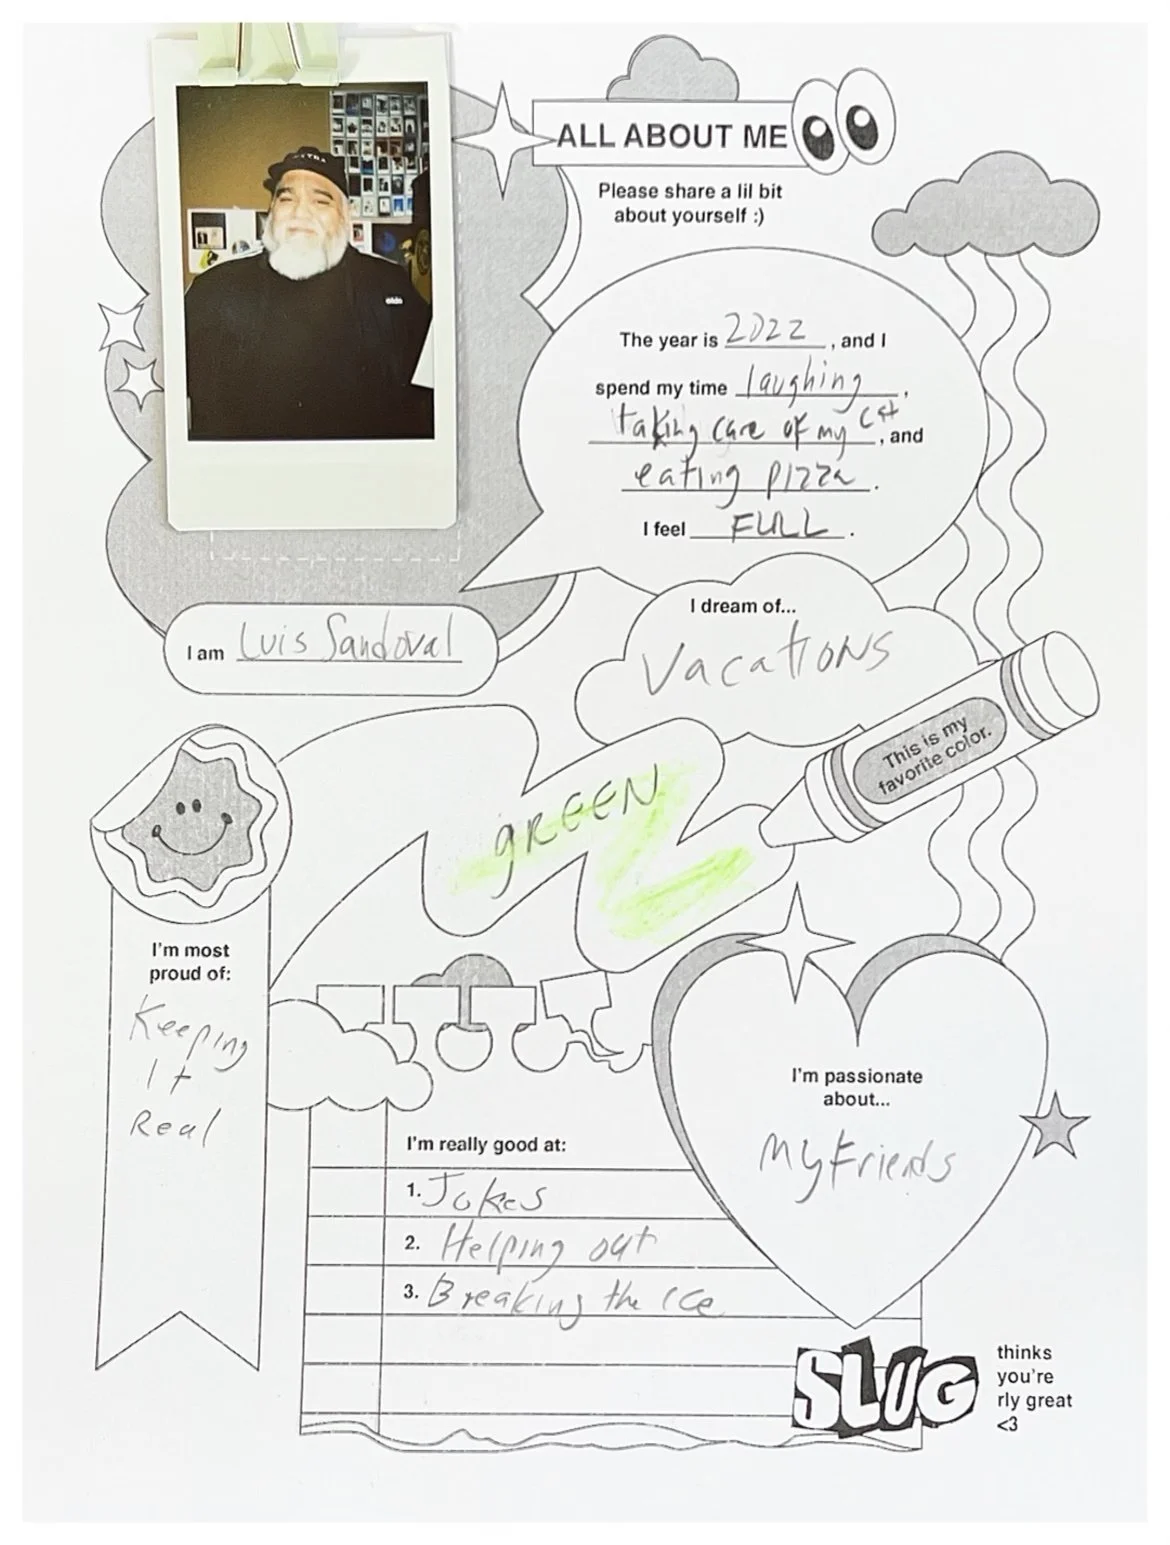 ALL ABOUT ME
Please share a lil bit
about yourself :)
The year is 2022, and I
spend my time laughing,
taking care of my cat, and
eating pizza.
I feel FULL.
I am Luis Sandoval
I dream of...
Vacations
This is my
favorite color.
gREEN
I'm most
proud of:
Keeping
It
Real
I'm passionate
about...
My Friends
I'm really good at:
1. Jokes
2. Helping out
3. Breaking the Ice
SLUG
thinks
you're
rly great
<3